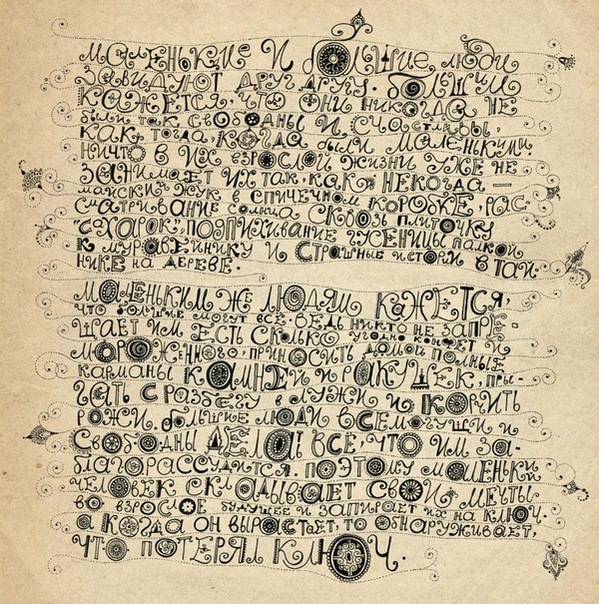 маленькие и большие люди
завидуют друг другу. большим
кажется, что они никогда не
были так свободны и счастливы,
как тогда, когда были маленькими.
ничто в их взрослой жизни уже не
занимает их так, как некогда —
майский жук в спичечном коробке, рас-
сматривание солнца сквозь плиточку
сахарок, поэпихивание гусеницы палкой
к муравейнику и страшные истории в тай-
нике на дереве.
маленьким же людям кажется,
что большие могут всё. ведь никто не запре-
щает им есть сколько угодно конфет и
мороженного, приносить домой полные
карманы камней и ракушек, пры-
гать с разбегу в лужи и корчить
рожи. большие люди всемогущи и
свободны делать всё, что им за-
благорассудится. поэтому маленький
человек складывает свои мечты
во взрослое будущее и запирает их на ключ.
а когда он вырастает, то обнаруживает,
что потерял ключ.